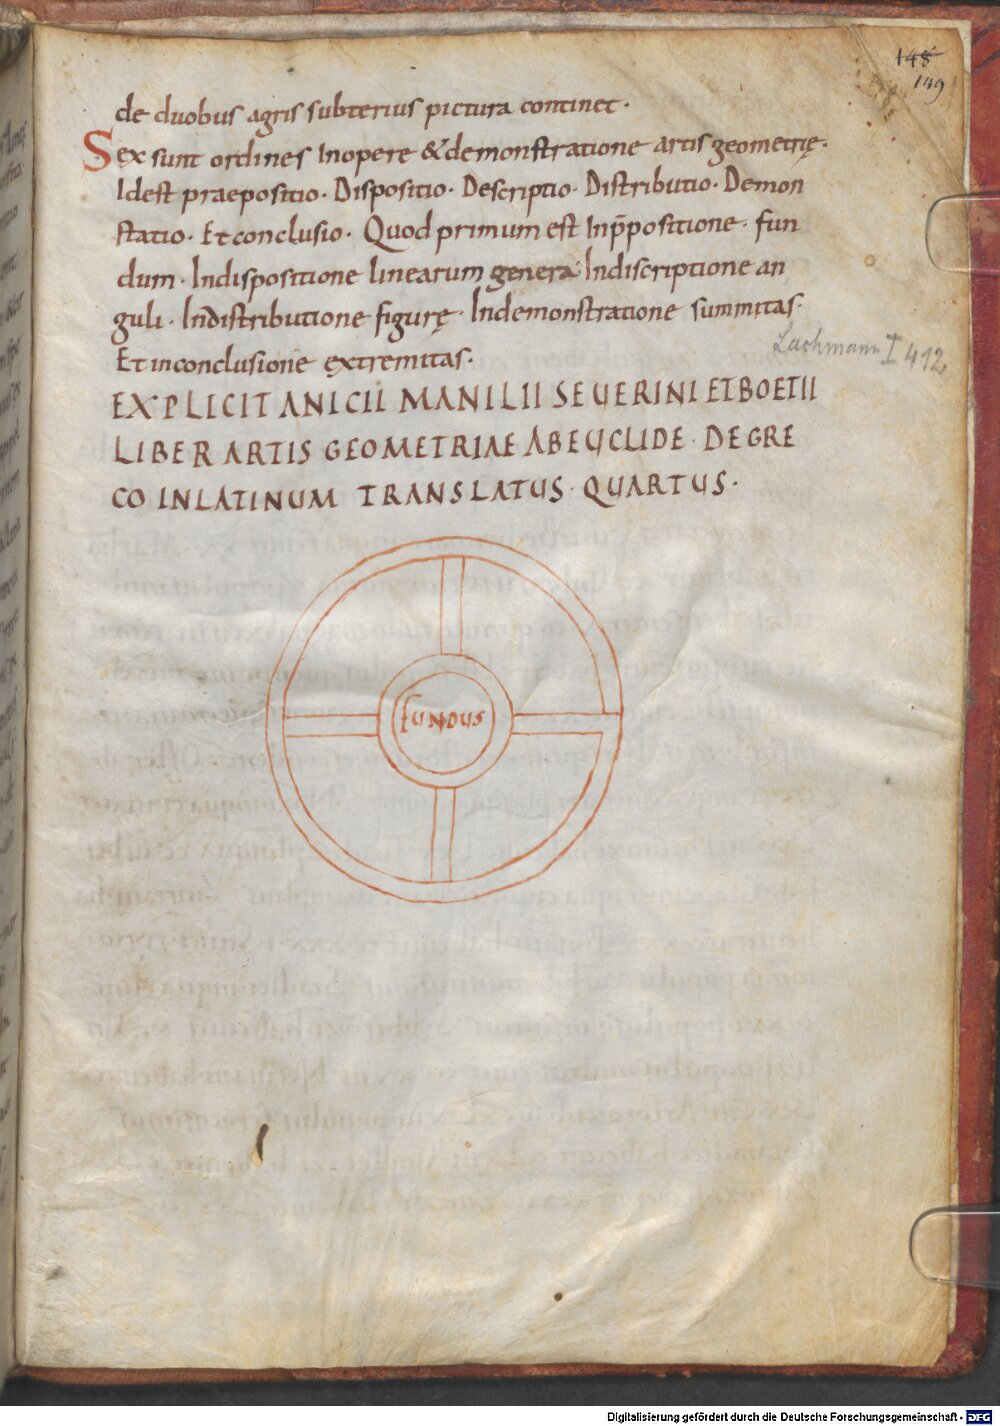 148
149
de duobus agris subterius pictura continet ·
Sex sunt ordines Inopere & demonstratione artis geometrię ·
Idest praepositio · Dispositio · Descriptio · Distributio · Demon
stratio · Et conclusio · Quod primum est Inp̄positione · fun
dum · Indispositione linearum genera Indiscriptione an
guli · Indistributione figurę · Indemonstratione summitas ·
Et inconclusione extremitas ·
Lachmann I 412
EXPLICIT ANICII MANILII SEUERINI ETBOETII
LIBER ARTIS GEOMETRIAE ABEUCLIDE · DEGRE
CO INLATINUM TRANSLATUS · QUARTUS ·
fundus
Digitalisierung gefördert durch die Deutsche Forschungsgemeinschaft - DFG